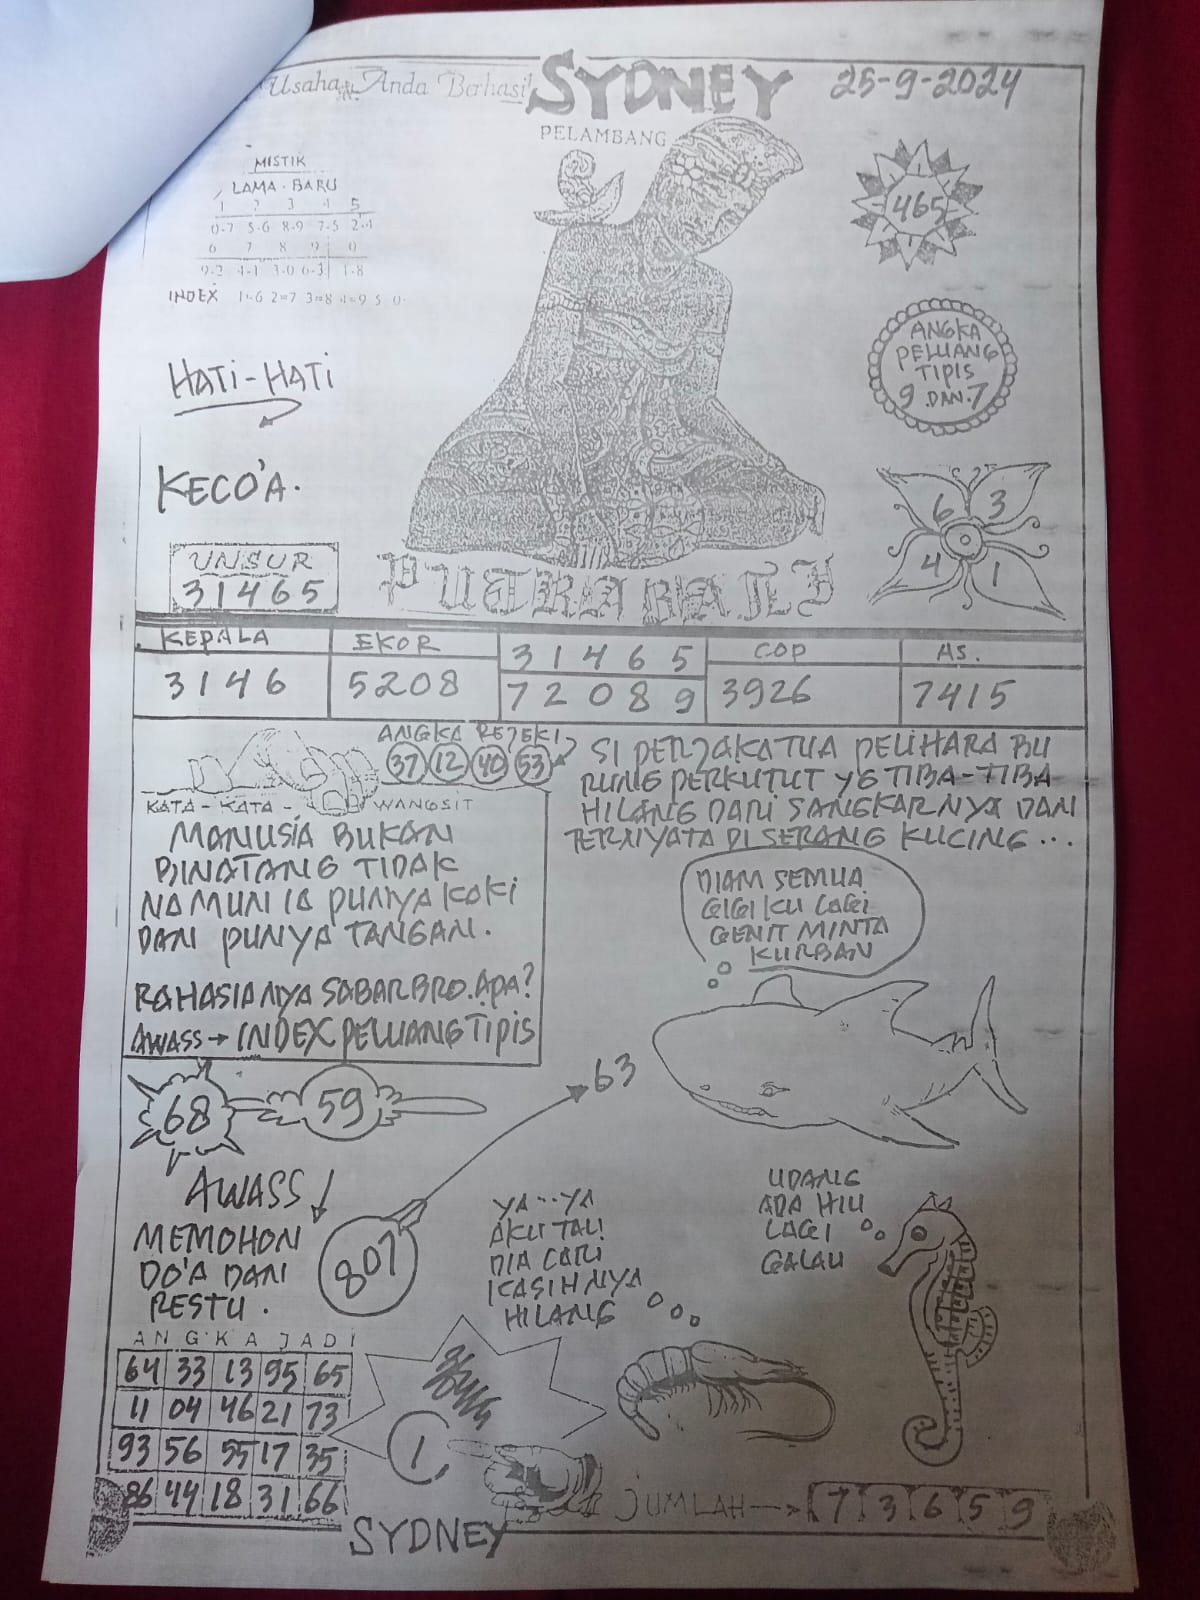 Usaha Anda Berhasil
SYDNEY
25-9-2024
PELAMBANG
MISTIK
LAMA - BARU
1 2 3 4 5
0-7 5-6 8-9 7-5 2-4
6 7 8 9 0
9-2 4-1 3-0 6-3 1-8
INDEX 1=6 2=7 3=8 4=9 5 0
465
ANGKA
PELUANG
TIPIS
9 DAN 7
HATI-HATI
KECO'A.
6 3
4 1
UNSUR
31465
PUTRA BALI
KEPALA
3146
EKOR
5208
3 1 4 6 5
7 2 0 8 9
COP
3926
AS.
7415
ANGKA REJEKI
37 12 40 53
KATA - KATA - WANGSIT
MANUSIA BUKAN
BINATANG TIDAK
NAMUN IA PUNYA KAKI
DAN PUNYA TANGAN.
RAHASIANYA SABAR BRO. APA?
AWASS → INDEX PELUANG TIPIS
SI PENJAKATUA PELIHARA BU
RUNG PERKUTUT YG TIBA-TIBA
HILANG DARI SANGKARNYA DAN
TERNYATA DI SERANG KUCING...
DIAM SEMUA
GIGI KU LAGI
GENIT MINTA
KURBAN
68
59
63
AWASS
MEMOHON
DO'A DAN
RESTU.
807
YA...YA
AKU TAU
DIA CARI
KASIHNYA
HILANG
UDANG
ADA HIU
LAGI
GALAU
ANGKA JADI
64 33 13 95 65
11 04 46 21 73
93 56 55 17 35
86 44 18 31 66
1.
JUMLAH → 7 3 6 5 9
SYDNEY